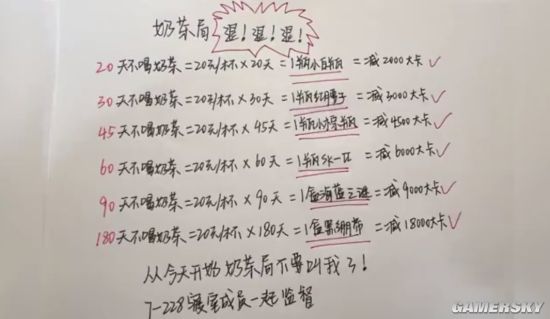 奶茶局 退!退!退!
20天不喝奶茶=20元/杯×20天=1瓶小白瓶=减2000大卡✓
30天不喝奶茶=20元/杯×30天=1瓶红腰子=减3000大卡✓
45天不喝奶茶=20元/杯×45天=1瓶小棕瓶=减4500大卡✓
60天不喝奶茶=20元/杯×60天=1瓶SK-II=减6000大卡✓
90天不喝奶茶=20元/杯×90天=1盒海蓝之谜=减9000大卡✓
180天不喝奶茶=20元/杯×180天=1盒黑绷带=减18000大卡✓
从今天开始奶茶局不要叫我了!
7-228寝室成员一起监督
GAMERSKY